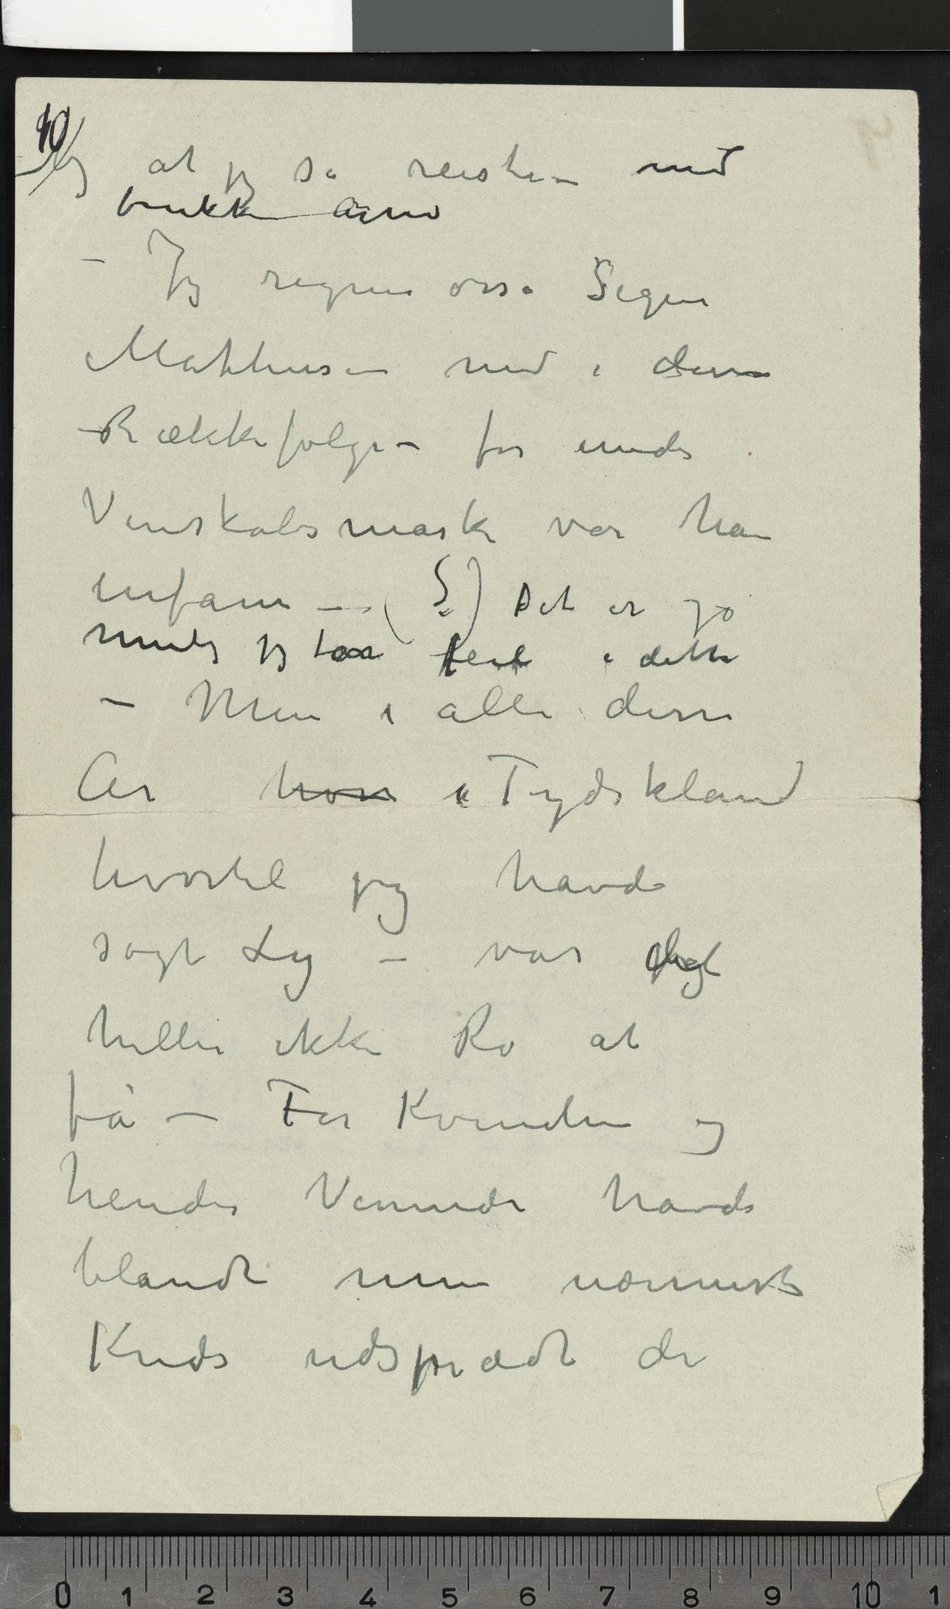 10
og at jeg så reiste – med
brukket arm
– Jeg regner osså Sigur
Mathhisen med i denne
Rækkefølge – for under
Venskabsmaske var han
infam – (S?) Det er jo
mulig jeg tar feil i dette
– Men i alle disse
År hvor i Tydskland
hvortil jeg havde
søgt Ly – var
heller ikke Ro at
få – For Kvinden og
hendes Veninde havde
blandt min nærmeste
Kreds udsprædt de
0 1 2 3 4 5 6 7 8 9 10 1